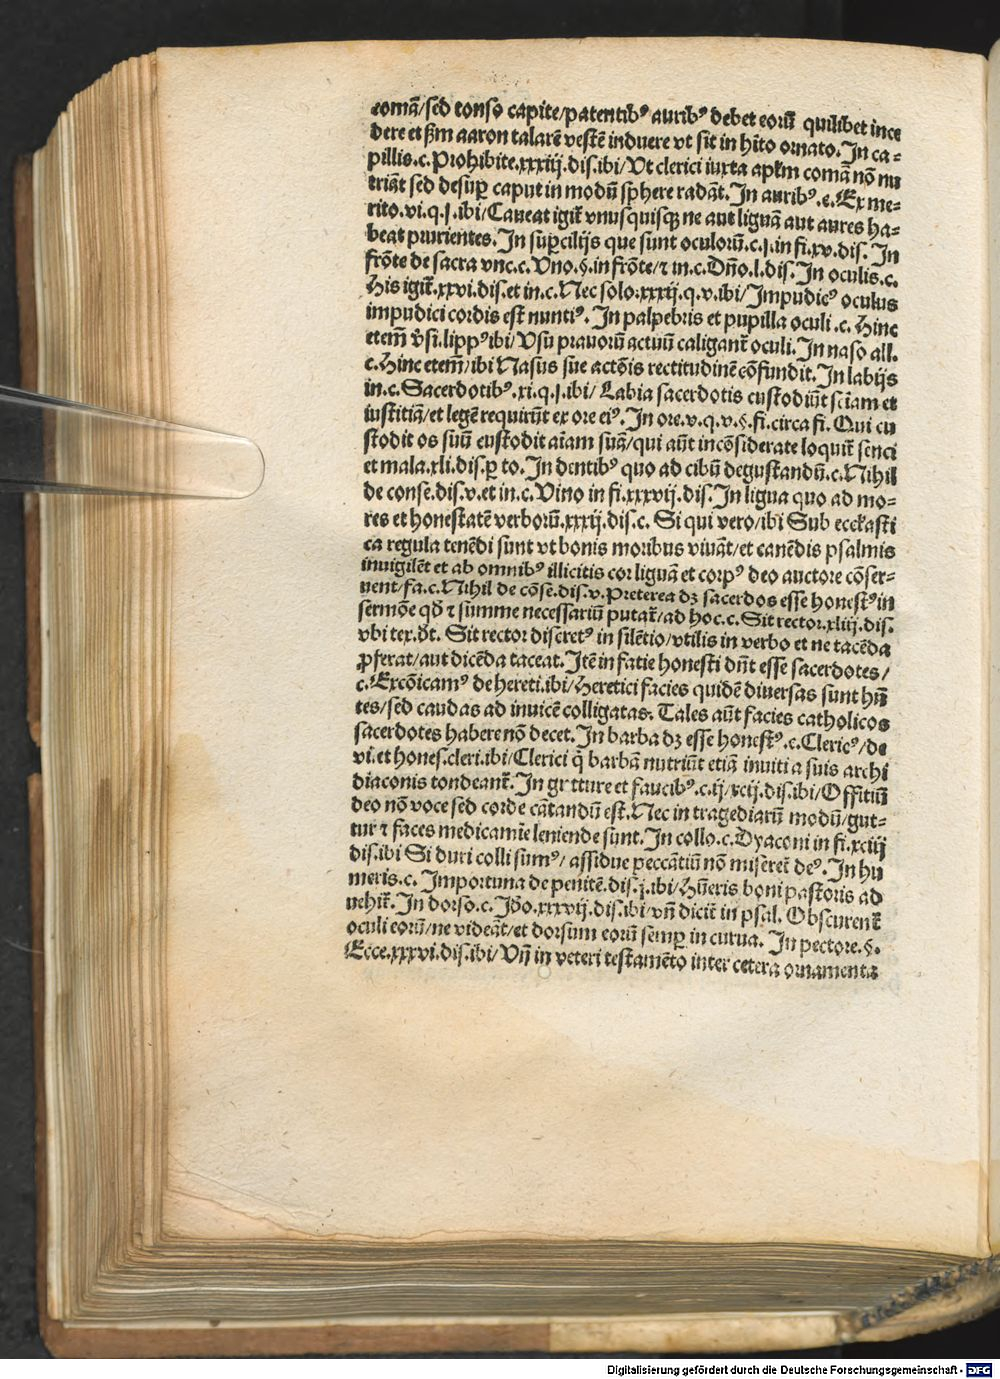 comā/sed tonso capite/patentibꝰ auribꝰ debet eorū quilibet ince
dere et ẜm aaron talarē vestē induere vt sit in hīto ornato. In ca-
pillis.c. Prohibite.xxxiij.dis.ibi/Vt clerici iuxta aplm̄ comā nō nu
triāt sed desuꝑ caput in modū sphere radāt. In auribꝰ.c. Ex me-
rito.vi.q.j.ibi/Caueat igit̄ vnusquisqꝫ ne aut liguā aut aures ha-
beat prurientes. In suꝑcilijs que sunt oculorū.c.j.in fi.xv.dis. In
frōte de sacra vnc.c. Vno.§.in frōte/⁊ in.c. Dn̄o.l.dis. In oculis.c.
His igit̄.xxvi.dis.et in.c. Nec solo.xxxij.q.v.ibi/Impudicꝰ oculus
impudici cordis est nuntiꝰ. In palpebris et pupilla oculi.c. Hinc
etem̄ v̓si.lippꝰ ibi/Vsu prauorū actuū caligant̄ oculi. In naso all.
c. Hinc etem̄/ibi Nasus sue actōis rectitudinē cōfundit. In labijs
in.c. Sacerdotibꝰ.xi.q.j.ibi/Labia sacerdotis custodiūt sciam et
iustitiā/et legē requirūt ex ore eiꝰ. In ore.v.q.v.§.fi.circa fi. Qui cu
stodit os suū custodit aīam suā/qui aūt incōsiderate loquit̄ senci
et mala.xli.dis.ꝑ to. In dentibꝰ quo ad cibū degustandū.c. Nihil
de conse.dis.v.et in.c. Vino in fi.xxxvij.dis. In ligua quo ad mo-
res et honestatē verborū.xxxij.dis.c. Si qui vero/ibi Sub eccl̄asti
ca regula tenēdi sunt vt bonis moribus viuāt/et canēdis psalmis
inuigilēt et ab omnibꝰ illicitis cor liguā et corpꝰ deo auctore cōser-
uent/fa.c. Nihil de cōse.dis.v. Preterea dꝫ sacerdos esse honestꝰ in
sermōe qd̄ ⁊ summe necessariū putat̄/ad hoc.c. Sit rector.xliij.dis.
vbi tex.d̄t. Sit rector discretꝰ in silētio/vtilis in verbo et ne tacēda
ꝓferat/aut dicēda taceat. Itē in fatie honesti dn̄t esse sacerdotes/
c. Excōicamꝰ de hereti.ibi/Heretici facies quidē diuersas sunt hn̄
tes/sed caudas ad inuicē colligatas. Tales aūt facies catholicos
sacerdotes habere nō decet. In barba dꝫ esse honestꝰ.c. Clericꝰ/de
vi.et hones.cleri.ibi/Clerici q̄ barbā nutriūt etiā inuiti a suis archi
diaconis tondeant̄. In gr tture et faucibꝰ.c.ij/xcij.dis.ibi/Offitiū
deo nō voce sed corde cātandū est. Nec in tragediarū modū/gut-
tur ⁊ faces medicamīe leniende sunt. In collo.c. Dyaconi in fi.xciij
dis.ibi Si duri colli sumꝰ/assidue peccātiū nō miseret̄ deꝰ. In hu
meris.c. Importuna de penitē.dis.j.ibi/Hūeris boni pastoris ad
uehit̄. In dorso.c. Ido.xxxvij.dis.ibi/vn̄ dicit̄ in psal. Obscurent̄
oculi eorū/ne videāt/et dorsum eorū semꝑ in curua. In pectore.§.
Ecce.xxxvi.dis.ibi/Vn̄ in veteri testamēto inter cetera ornamenta
Digitalisierung gefördert durch die Deutsche Forschungsgemeinschaft - DFG